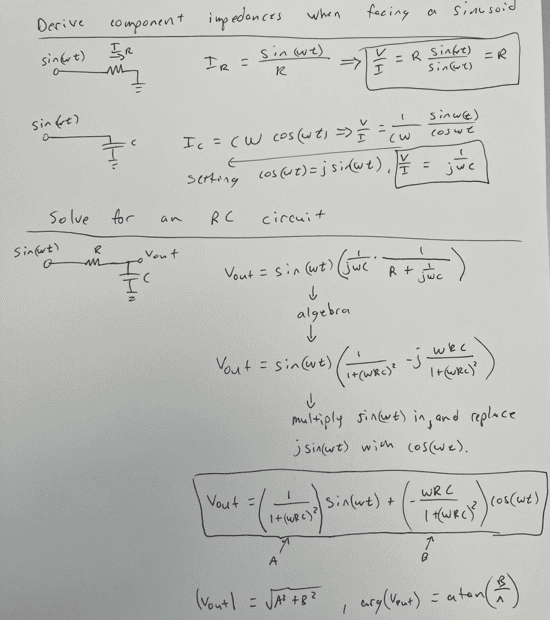 Derive component impedances when facing a sinusoid
sin(wt) I R
I_R = sin(wt)/R ⟹ V/I = R sin(wt)/sin(wt) = R
sin(wt) C
I_c = CW cos(wt) ⟹ V/I = 1/CW sinw(t)/coswt
setting cos(wt)=jsin(wt), V/I = 1/jwc
Solve for an RC circuit
sin(wt) R Vout C
Vout = sin(wt) (1/jwC · 1/(R + 1/jwc))
↓
algebra
↓
Vout = sin(wt) (1/(1+(WRC)²) - j WRC/(1+(WRC)²))
↓
multiply sin(wt) in, and replace
jsin(wt) with cos(wt).
Vout = (1/(1+(WRC)²)) sin(wt) + (-WRC/(1+(WRC)²)) cos(wt)
A B
|Vout| = √(A²+B²) , arg(Vout) = atan(B/A)